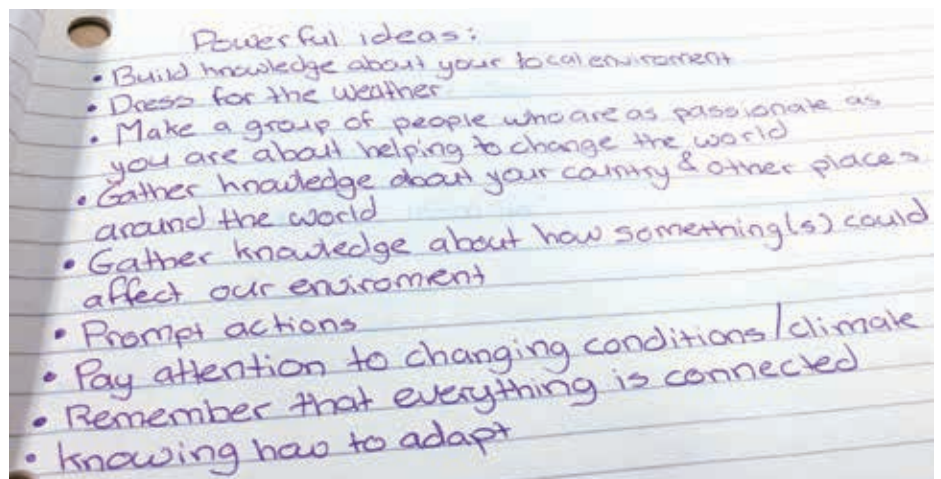 Powerful ideas:
• Build knowledge about your local enviroment
• Dress for the weather
• Make a group of people who are as passionate as
you are about helping to change the world
• Gather knowledge about your country & other places
around the world
• Gather knowledge about how something(s) could
affect our enviroment
• Prompt actions
• Pay attention to changing conditions/climate
• Remember that everything is connected
• Knowing how to adapt